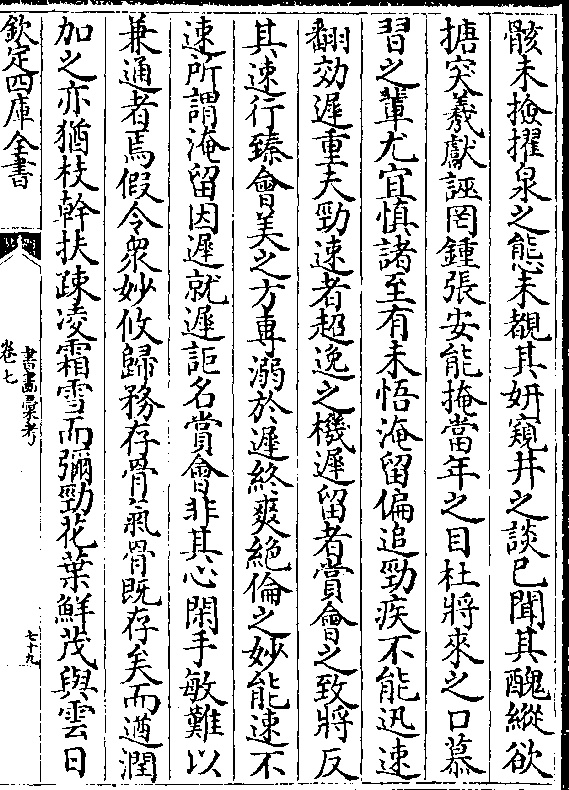 骸未撿擢泉之態未覩其妍窺井之談已聞其醜縱欲
搪突羲獻誣罔鍾張安能掩當年之目杜將來之口慕
習之輩尤宜慎諸至有未悟淹留偏追勁疾不能迅速
翻効遲重夫勁速者超逸之機遲留者賞會之致將反
其速行臻會美之方專溺於遲終爽絶倫之妙能速不
速所謂淹留因遲就遲詎名賞會非其心閑手敏難以
兼通者焉假令衆妙攸歸務存骨氣骨既存矣而遒潤
加之亦猶枝幹扶疎凌霜雪而彌勁花葉鮮茂與雲日
欽定四庫全書
書畫彚考
卷七
七十九